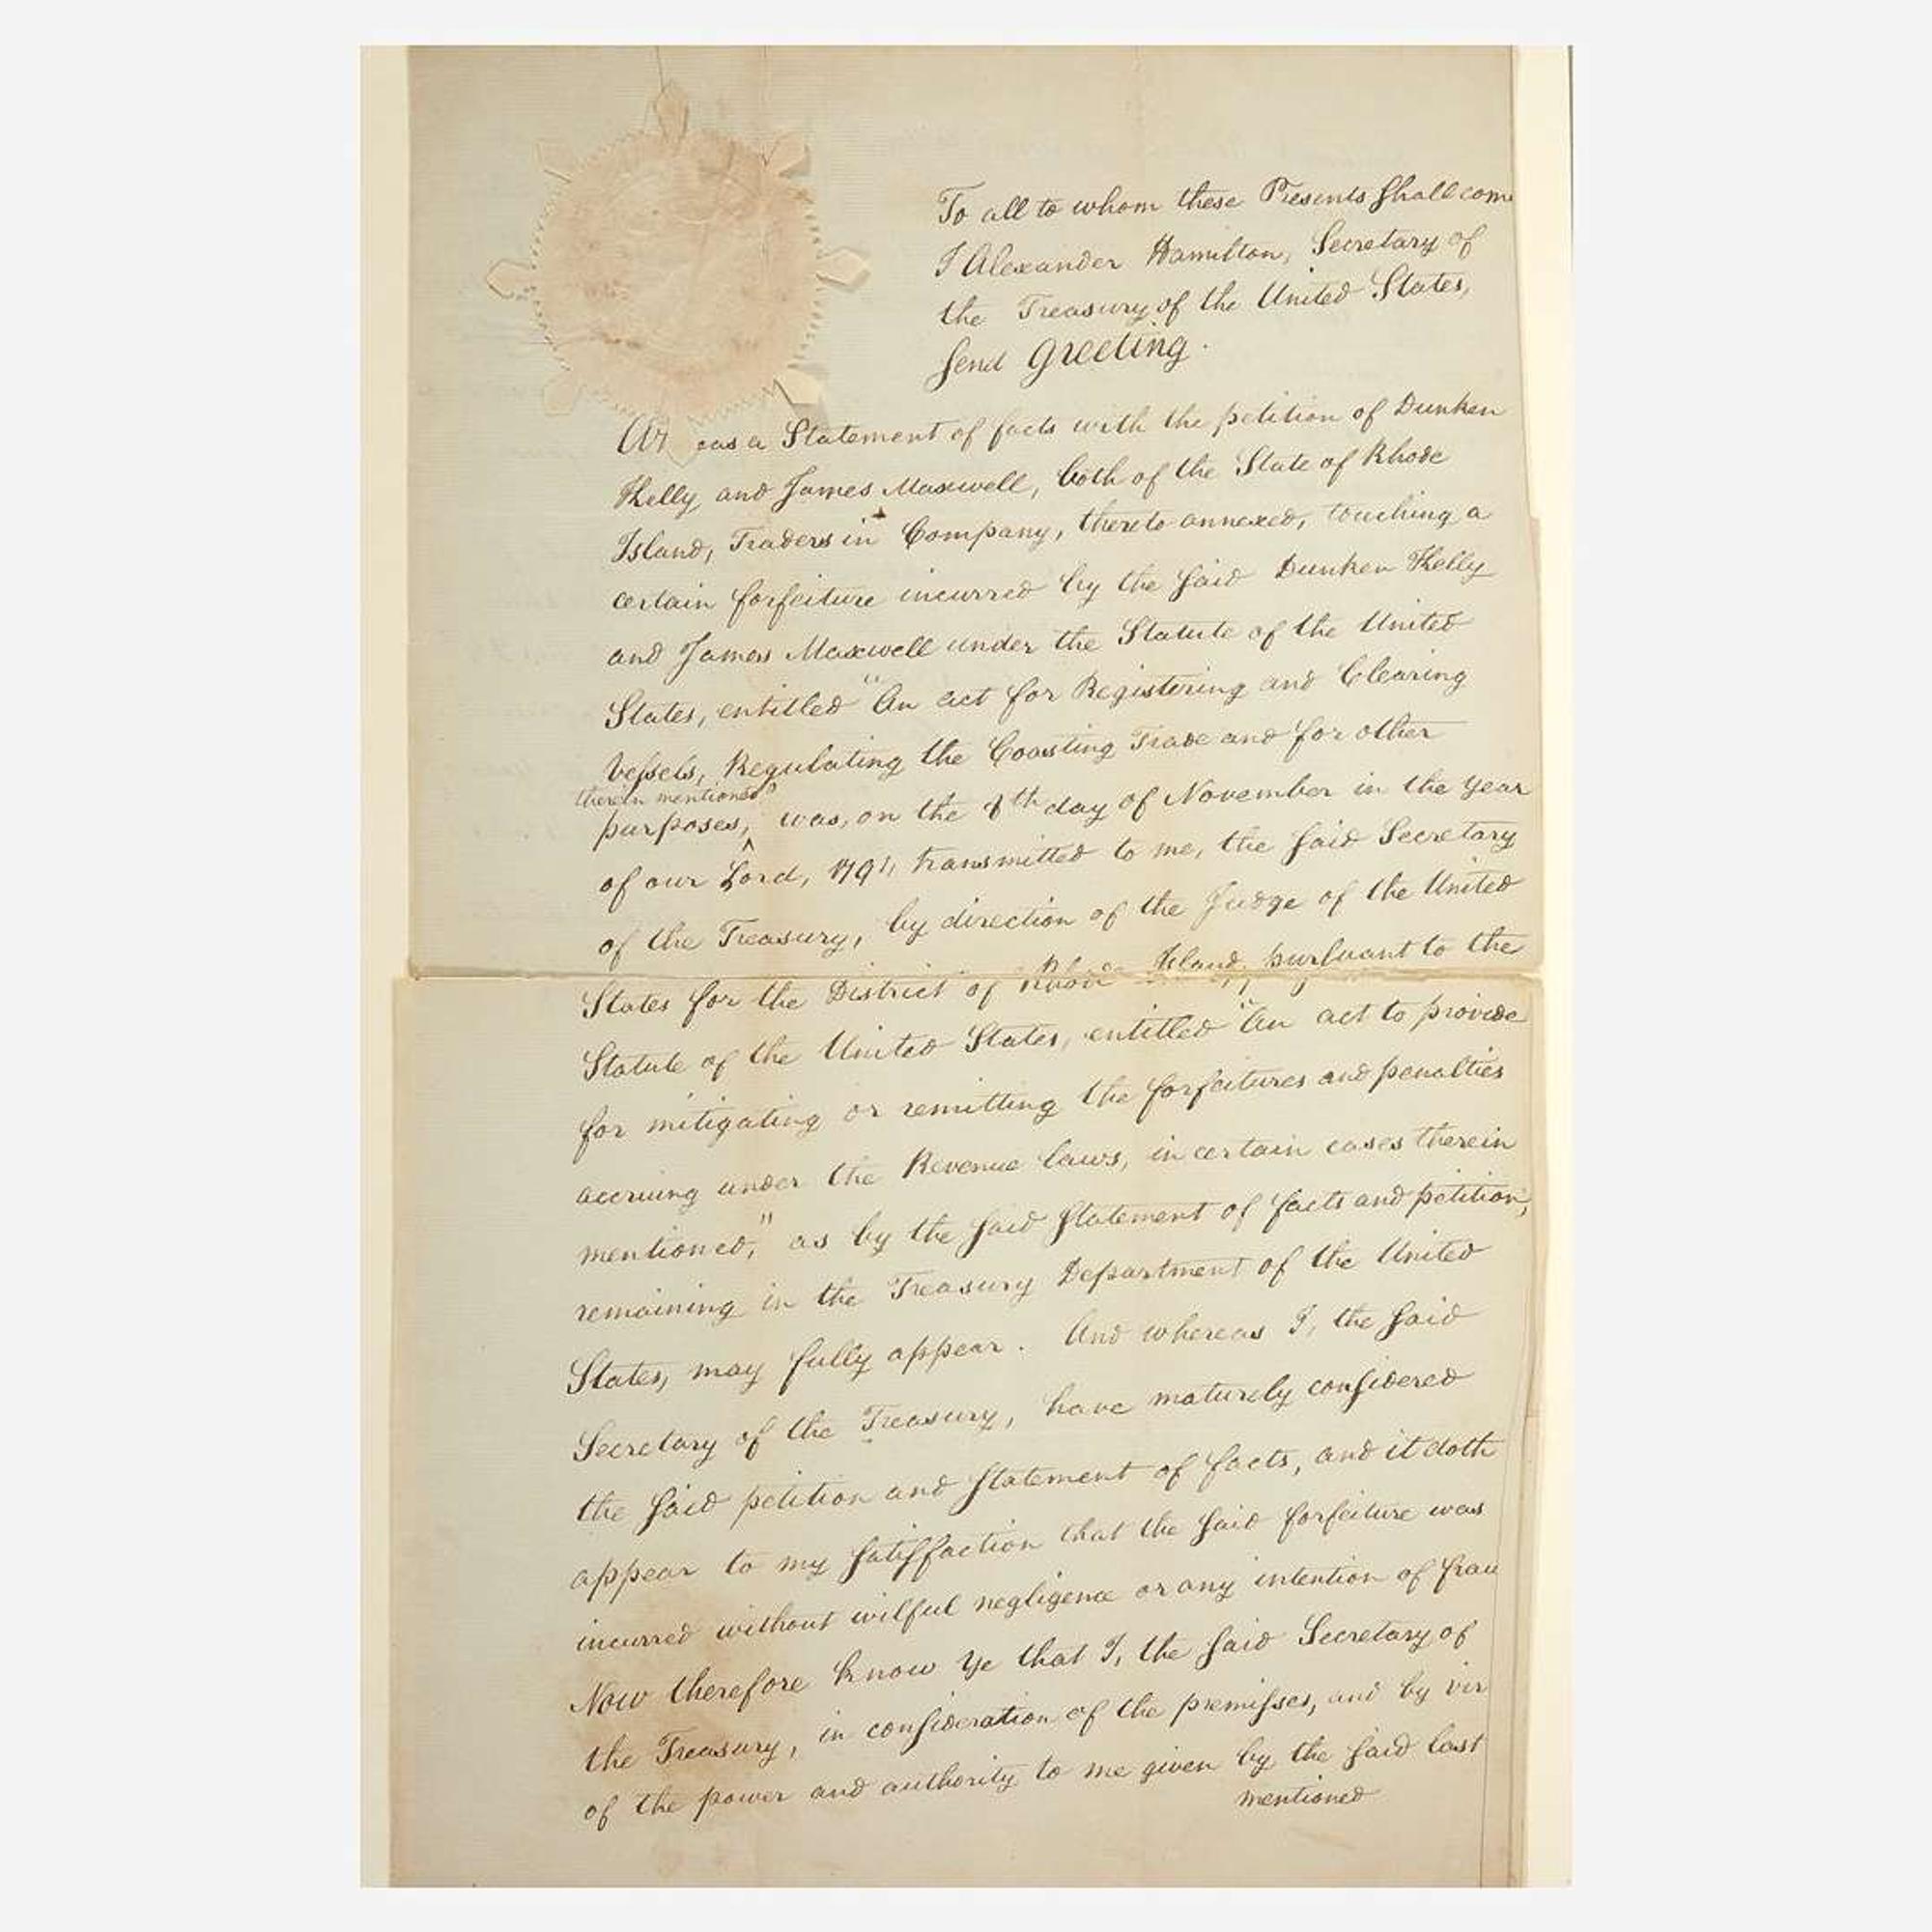 To all to whom these Presents shall come
I Alexander Hamilton, Secretary of
the Treasury of the United States,
send Greeting.
eas a Statement of facts with the petition of Dunken
Kelly and James Maxwell, both of the State of Rhode
Island, Traders in Company, thereto annexed, touching a
certain forfeiture incurred by the said Dunken Kelly
and James Maxwell under the Statute of the United
States, entitled "An act for Registering and Clearing
Vessels, Regulating the Coasting Trade and for other
therein mentioned"
purposes, was, on the day of November in the year
of our Lord, 1791, transmitted to me, the said Secretary
of the Treasury, by direction of the Judge of the United
States for the District of Rhode Island, pursuant to the
Statute of the United States, entitled "An act to provide
for mitigating or remitting the forfeitures and penalties
accruing under the Revenue laws, in certain cases therein
mentioned," as by the said statement of facts and petition,
remaining in the Treasury Department of the United
States, may fully appear. And whereas I, the said
Secretary of the Treasury, have maturely considered
the said petition and statement of facts, and it doth
appear to my satisfaction that the said forfeiture was
incurred without wilful negligence or any intention of frau
Now therefore know ye that I, the said Secretary of
the Treasury, in consideration of the premisses, and by vir
of the power and authority to me given by the said last
mentioned